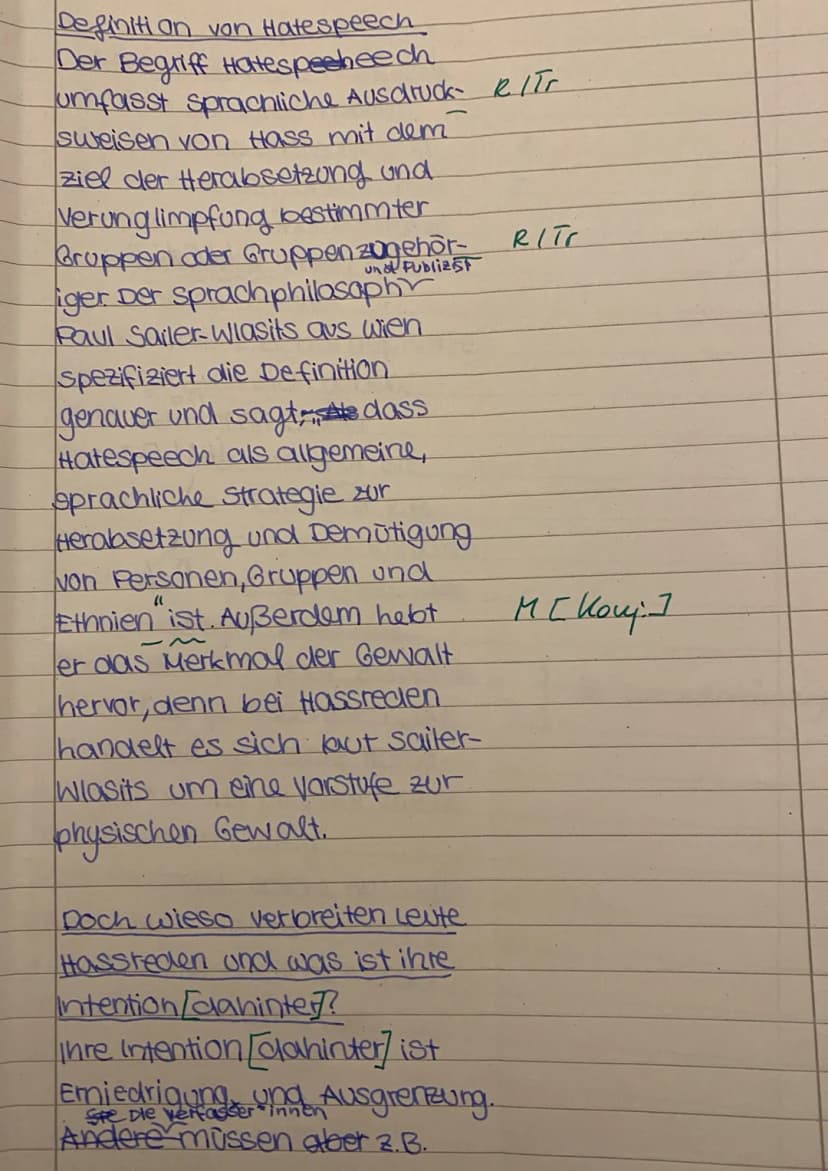 Definition von Hatespeech
Der Begriff Hatespeeheech
umfasst sprachliche Ausdruck- R/Tr
sweisen von Hass mit dem
Ziel der Herabsetzung und
Verunglimpfung bestimmter
Gruppen oder Gruppenzugehör- R/Tr
und Publizist
iger. Der Sprachphilosoph
Paul Sailer-Wlasits aus Wien
spezifiziert die Definition
genauer und sagt, „Als dass
Hatespeech als allgemeine,
sprachliche Strategie zur
Herabsetzung und Demütigung
von Personen, Gruppen und
Ethnien“ ist. Außerdem hebt M [Konj.]
er das Merkmal der Gewalt
hervor, denn bei Hassreden
handelt es sich laut Sailer-
Wlasits um eine Vorstufe zur
physischen Gewalt.
Doch wieso verbreiten Leute
Hassreden und was ist ihre
Intention [dahinter]?
Ihre Intention [dahinter] ist
Erniedrigung und Ausgrenzung.
Sie Die Verfasser*innen
Andere müssen aber z.B.